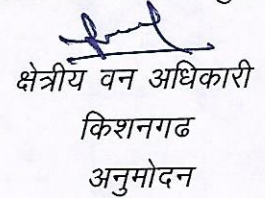 क्षेत्रीय वन अधिकारी
किशनगढ
अनुमोदन